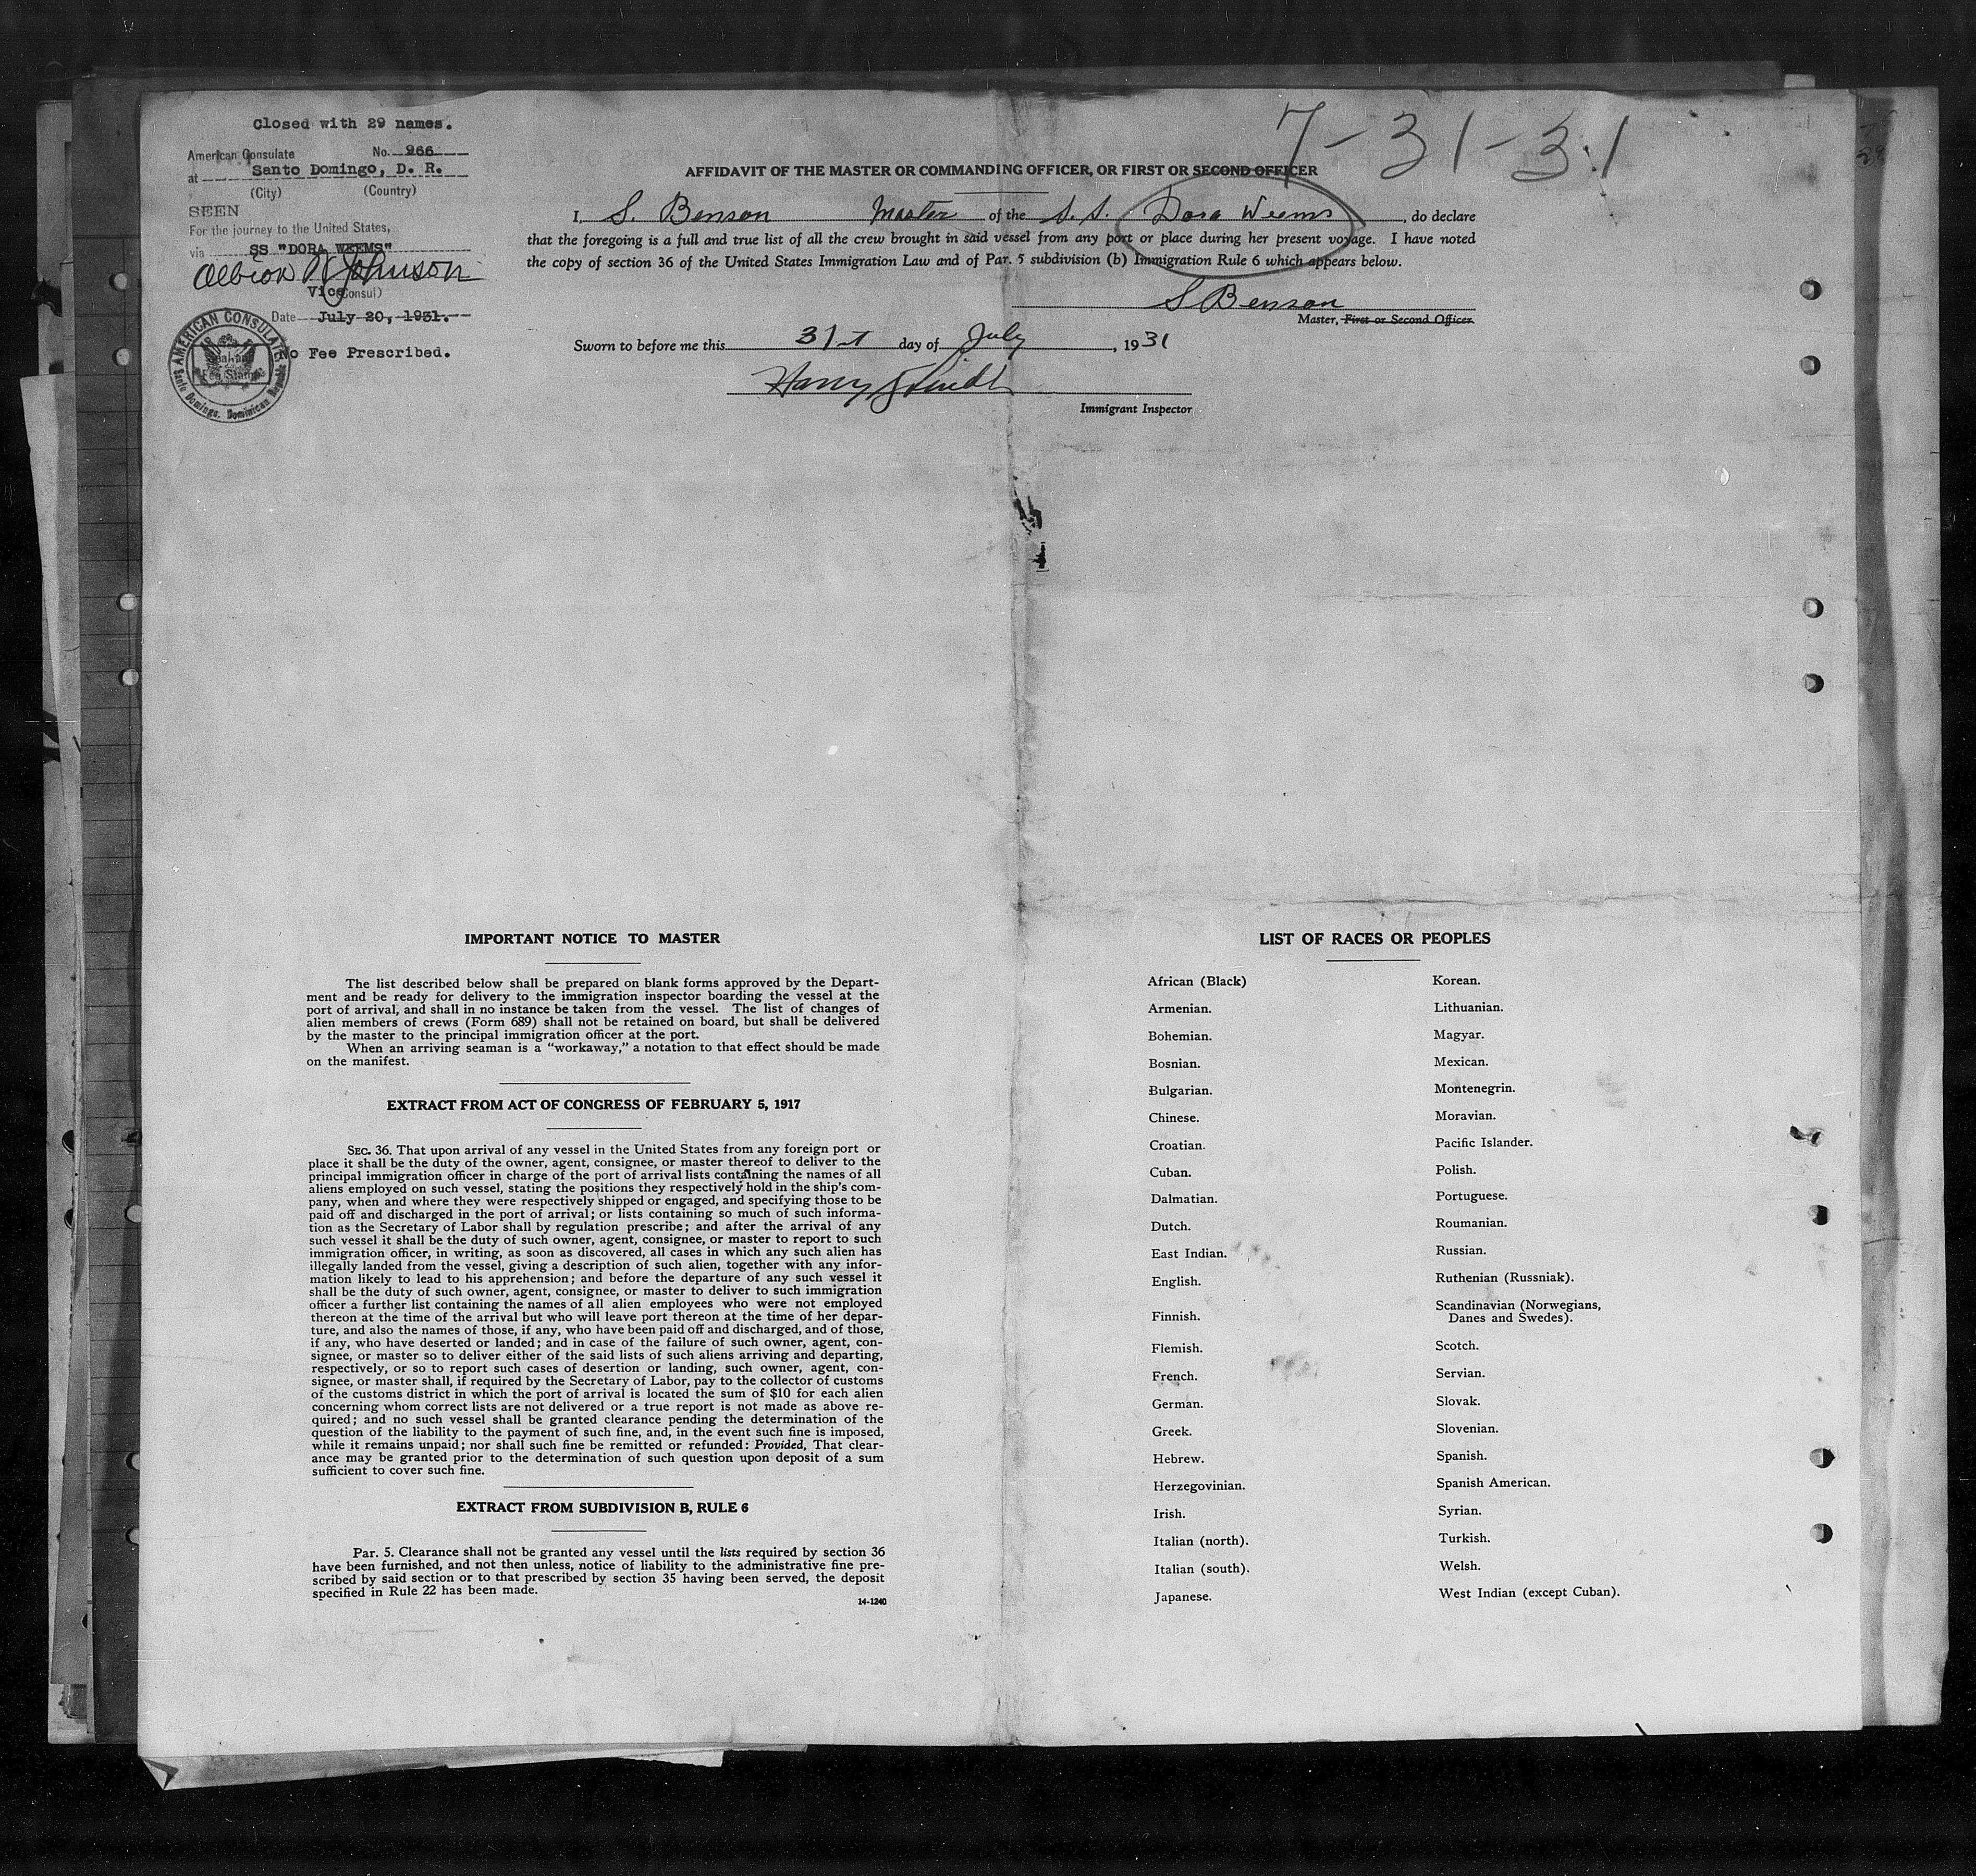 Closed with 29 names.
American Consulate No. 966
at Santo Domingo, D. R.
(City) (Country)
SEEN
For the journey to the United States,
via SS "DORA WEEMS"
Albion W Johnson
Vice (Consul)
Date July 20, 1931.
No Fee Prescribed.
AMERICAN CONSULATE
Santo Domingo, Dominican Republic
Fee Stamp
7-31-31
AFFIDAVIT OF THE MASTER OR COMMANDING OFFICER, OR FIRST OR SECOND OFFICER
I, S. Benson Master of the S. S. Dora Weems, do declare
that the foregoing is a full and true list of all the crew brought in said vessel from any port or place during her present voyage. I have noted
the copy of section 36 of the United States Immigration Law and of Par. 5 subdivision (b) Immigration Rule 6 which appears below.
S Benson
Master, First or Second Officer.
Sworn to before me this 31st day of July, 1931
Harry
Immigrant Inspector
IMPORTANT NOTICE TO MASTER
The list described below shall be prepared on blank forms approved by the Depart-
ment and be ready for delivery to the immigration inspector boarding the vessel at the
port of arrival, and shall in no instance be taken from the vessel. The list of changes of
alien members of crews (Form 689) shall not be retained on board, but shall be delivered
by the master to the principal immigration officer at the port.
When an arriving seaman is a "workaway," a notation to that effect should be made
on the manifest.
EXTRACT FROM ACT OF CONGRESS OF FEBRUARY 5, 1917
SEC. 36. That upon arrival of any vessel in the United States from any foreign port or
place it shall be the duty of the owner, agent, consignee, or master thereof to deliver to the
principal immigration officer in charge of the port of arrival lists containing the names of all
aliens employed on such vessel, stating the positions they respectively hold in the ship's com-
pany, when and where they were respectively shipped or engaged, and specifying those to be
paid off and discharged in the port of arrival; or lists containing so much of such informa-
tion as the Secretary of Labor shall by regulation prescribe; and after the arrival of any
such vessel it shall be the duty of such owner, agent, consignee, or master to report to such
immigration officer, in writing, as soon as discovered, all cases in which any such alien has
illegally landed from the vessel, giving a description of such alien, together with any infor-
mation likely to lead to his apprehension; and before the departure of any such vessel it
shall be the duty of such owner, agent, consignee, or master to deliver to such immigration
officer a further list containing the names of all alien employees who were not employed
thereon at the time of the arrival but who will leave port thereon at the time of her depar-
ture, and also the names of those, if any, who have been paid off and discharged, and of those,
if any, who have deserted or landed; and in case of the failure of such owner, agent, con-
signee, or master so to deliver either of the said lists of such aliens arriving and departing,
respectively, or so to report such cases of desertion or landing, such owner, agent, con-
signee, or master shall, if required by the Secretary of Labor, pay to the collector of customs
of the customs district in which the port of arrival is located the sum of $10 for each alien
concerning whom correct lists are not delivered or a true report is not made as above re-
quired; and no such vessel shall be granted clearance pending the determination of the
question of the liability to the payment of such fine, and, in the event such fine is imposed,
while it remains unpaid; nor shall such fine be remitted or refunded: Provided, That clear-
ance may be granted prior to the determination of such question upon deposit of a sum
sufficient to cover such fine.
EXTRACT FROM SUBDIVISION B, RULE 6
Par. 5. Clearance shall not be granted any vessel until the lists required by section 36
have been furnished, and not then unless, notice of liability to the administrative fine pre-
scribed by said section or to that prescribed by section 35 having been served, the deposit
specified in Rule 22 has been made.
14-1240
LIST OF RACES OR PEOPLES
African (Black)
Armenian.
Bohemian.
Bosnian.
Bulgarian.
Chinese.
Croatian.
Cuban.
Dalmatian.
Dutch.
East Indian.
English.
Finnish.
Flemish.
French.
German.
Greek.
Hebrew.
Herzegovinian.
Irish.
Italian (north).
Italian (south).
Japanese.
Korean.
Lithuanian.
Magyar.
Mexican.
Montenegrin.
Moravian.
Pacific Islander.
Polish.
Portuguese.
Roumanian.
Russian.
Ruthenian (Russniak).
Scandinavian (Norwegians,
Danes and Swedes).
Scotch.
Servian.
Slovak.
Slovenian.
Spanish.
Spanish American.
Syrian.
Turkish.
Welsh.
West Indian (except Cuban).